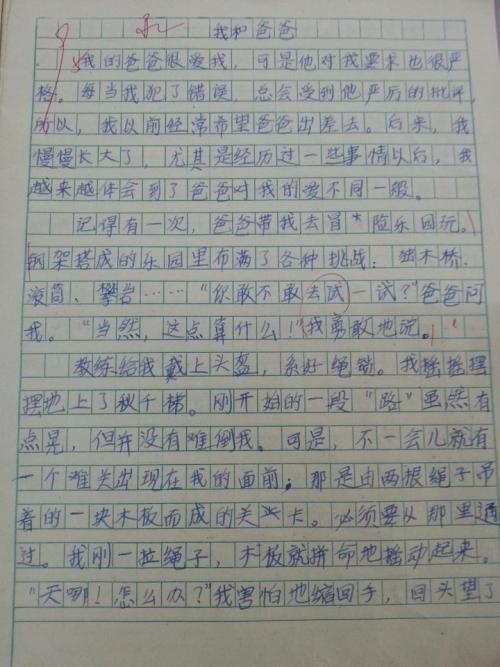 我和爸爸
我的爸爸很爱我，可是他对我要求也很严
格。每当我犯了错误，总会受到他严厉的批评，
所以，我以前经常希望爸爸出差去。后来，我
慢慢长大了，尤其是经历过一些事情以后，我
越来越体会到了爸爸对我的爱不同一般。
记得有一次，爸爸带我去冒险乐园玩。
钢架搭成的乐园里布满了各种挑战：独木桥、
滚筒、攀岩……“你敢不敢去试一试？”爸爸问
我。“当然，这点算什么！”我勇敢地说。
教练给我戴上头盔，系好绳锁。我摇摇摆
摆地上了秋千梯。刚开始的一段“路”虽然有
点晃，但并没有难倒我。可是，不一会儿就有
一个难关出现在我的面前：那是由两根绳子吊
着的一块木板而成的关卡。必须要从那里通
过。我刚一拉绳子，木板就拼命地摇动起来。
“天哪！怎么办？”我害怕地缩回手，回头望了